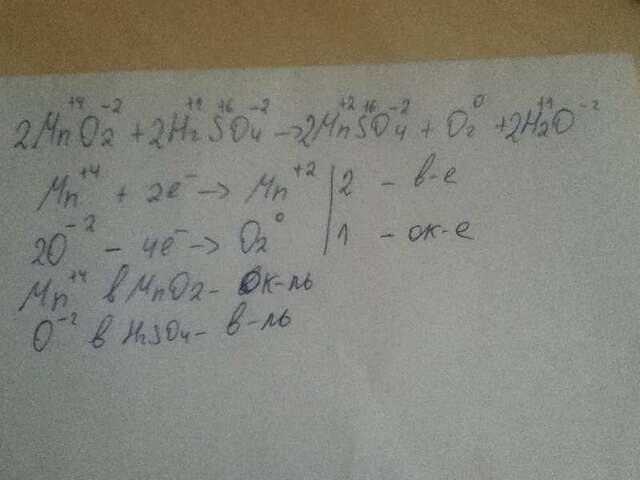 2Mn⁺⁴O₂⁻² + 2H₂⁺¹S⁺⁶O₄⁻² → 2Mn⁺²S⁺⁶O₄⁻² + O₂⁰ + 2H₂⁺¹O⁻²
Mn⁺⁴ + 2e⁻ → Mn⁺² | 2 - в-е
2O⁻² - 4e⁻ → O₂⁰ | 1 - ок-е
Mn⁺⁴ в MnO₂ - ок-ль
O⁻² в H₂SO₄ - в-ль